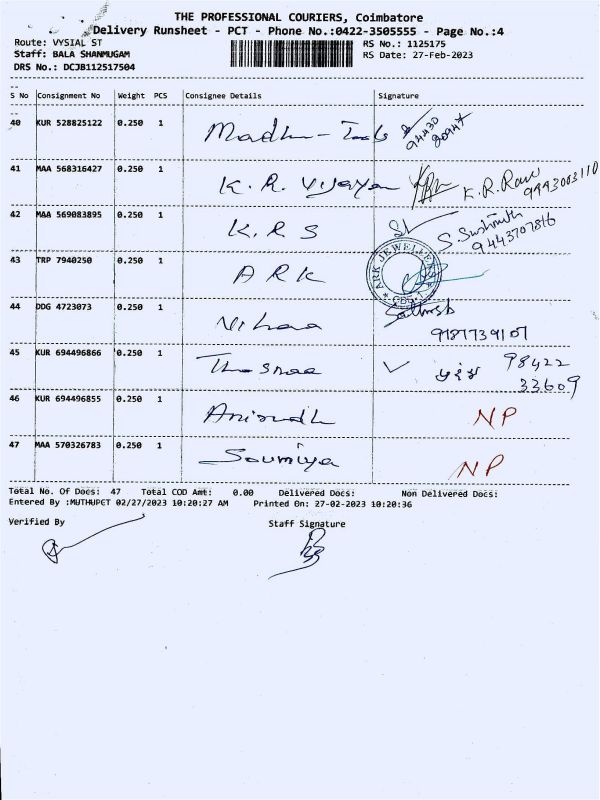 THE PROFESSIONAL COURIERS, Coimbatore
Delivery Runsheet - PCT - Phone No.:0422-3505555 - Page No.:4
Route: VYSIAL ST
Staff: BALA SHANMUGAM
DRS No.: DCJB112517504
RS No.: 1125175
RS Date: 27-Feb-2023
S No Consignment No Weight PCS Consignee Details Signature
40 KUR 528825122 0.250 1 Madhu - Tools 94430
80947
41 MAA 568316427 0.250 1 K. R. Vijayan K. R. Ravi 9443003110
42 MAA 569083895 0.250 1 K. R S S. Sushmith
9443707816
43 TRP 7940250 0.250 1 A R K ARK JEWELLERS
44 DDG 4723073 0.250 1 Nihaa Sathish
9187739107
45 KUR 694496866 0.250 1 98422
33609
46 KUR 694496855 0.250 1 Anirudh NP
47 MAA 570326783 0.250 1 Soumiya NP
Total No. Of Docs: 47 Total COD Amt: 0.00 Delivered Docs: Non Delivered Docs:
Entered By :MUTHUPCT 02/27/2023 10:20:27 AM Printed On: 27-02-2023 10:20:36
Verified By
Staff Signature